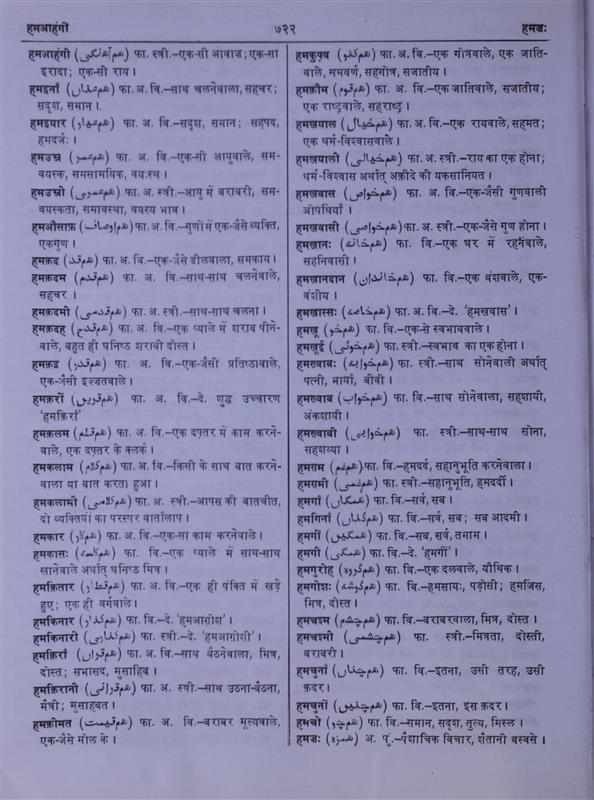 हमआहंगी
७२२
हमज़ः
हमआहंगी (ہم آہنگی) फा. स्त्री.–एक-सी आवाज; एक-सा
इरादा; एक-सी राय।
हमइनाँ (ہم عناں) फा. अ. वि.–साथ चलनेवाला, सहचर;
सदृश, समान।
हमइयार (ہم عیار) फा. अ. वि.–सदृश, समान; सहपद,
हमदर्जः।
हमउम्र (ہم عمر) फा. अ. वि.–एक-सी आयुवाले, सम-
वयस्क, समसामयिक, वयःस्थ।
हमउम्री (ہم عمری) फा. अ. स्त्री.–आयु में बराबरी, सम-
वयस्कता, समायस्था, वयस्य भाव।
हमऔसाफ़ (ہم اوصاف) फा. अ. वि.–गुणों में एक-जैसे व्यक्ति,
एकगुण।
हमक़द (ہم قد) फा. अ. वि.–एक-जैसे डीलवाला, समकाय।
हमक़दम (ہم قدم) फा. अ. वि.–साथ-साथ चलनेवाले,
सहचर।
हमक़दमी (ہم قدمی) फा. अ. स्त्री.–साथ-साथ चलना।
हमक़दह (ہم قدح) फा. अ. वि.–एक प्याले में शराब पीने-
वाले, बहुत ही घनिष्ठ शराबी दोस्त।
हमक़द्र (ہم قدر) फा. अ. वि.–एक-जैसी प्रतिष्ठावाले,
एक-जैसी इज्जतवाले।
हमक़रीं (ہم قریں) फा. अ. वि.–दे. शुद्ध उच्चारण
'हमक़िराँ'
हमक़लम (ہم قلم) फा. अ. वि.–एक दफ़्तर में काम करने-
वाले, एक दफ़्तर के क्लर्क।
हमकलाम (ہم کلام) फा. अ. वि.–किसी के साथ बात करने-
वाला या बात करता हुआ।
हमकलामी (ہم کلامی) फा. अ. स्त्री.–आपस की बातचीत,
दो व्यक्तियों का परस्पर वार्तालाप।
हमकार (ہم کار) फा. वि.–एक-सा काम करनेवाले।
हमकासः (ہم کاسہ) फा. वि.–एक प्याले में साथ-साथ
खानेवाले अर्थात् घनिष्ठ मित्र।
हमक़ितार (ہم قطار) फा. अ. वि.–एक ही पंक्ति में खड़े
हुए; एक ही वर्गवाले।
हमकिनार (ہم کنار) फा. वि.–दे. 'हमआग़ोश'।
हमकिनारी (ہم کناری) फा. स्त्री.–दे. 'हमआग़ोशी'।
हमक़िराँ (ہم قراں) फा. अ. वि.–साथ बैठनेवाला, मित्र,
दोस्त; सभासद, मुसाहिब।
हमक़िरानी (ہم قرانی) फा. अ. स्त्री.–साथ उठना-बैठना,
मैत्री; मुसाहबत।
हमक़ीमत (ہم قیمت) फा. अ. वि.–बराबर मूल्यवाले,
एक-जैसे मोल के।
हमकुफ़्व (ہم کفو) फा. अ. वि.–एक गोत्रवाले, एक जाति-
वाले, समवर्ण, सहगोत्र, सजातीय।
हमक़ौम (ہم قوم) फा. अ. वि.–एक जातिवाले, सजातीय;
एक राष्ट्रवाले, सहराष्ट्र।
हमख़याल (ہم خیال) फा. अ. वि.–एक रायवाले, सहमत;
एक धर्म-विश्वासवाले।
हमख़याली (ہم خیالی) फा. अ. स्त्री.–राय का एक होना;
धर्म-विश्वास अर्थात् अक़ीदे की यकसानियत।
हमख़वास (ہم خواص) फा. अ. वि.–एक-जैसी गुणवाली
ओषधियाँ।
हमख़वासी (ہم خواصی) फा. अ. स्त्री.–एक-जैसे गुण होना।
हमख़ानः (ہم خانہ) फा. वि.–एक घर में रहनेवाले,
सहनिवासी।
हमख़ानदान (ہم خاندان) फा. वि.–एक वंशवाले, एक-
वंशीय।
हमख़ास्सः (ہم خاصہ) फा. अ. वि.–दे. 'हमख़वास'।
हमख़ू (ہم خو) फा. वि.–एक-से स्वभाववाले।
हमख़ूई (ہم خوئی) फा. स्त्री.–स्वभाव का एक होना।
हमख़्वाबः (ہم خوابہ) फा. स्त्री.–साथ सोनेवाली अर्थात्
पत्नी, भार्या, बीवी।
हमख़्वाब (ہم خواب) फा. वि.–साथ सोनेवाला, सहशायी,
अंकशायी।
हमख़्वाबी (ہم خوابی) फा. स्त्री.–साथ-साथ सोना,
सहशय्या।
हमग़म (ہم غم) फा. वि.–हमदर्द, सहानुभूति करनेवाला।
हमग़मी (ہم غمی) फा. स्त्री.–सहानुभूति, हमदर्दी।
हमगाँ (ہمگاں) फा. वि.–सर्व, सब।
हमगिनाँ (ہم گناں) फा. वि.–सर्व, सब; सब आदमी।
हमगीं (ہمگیں) फा. वि.–सब, सर्व, तमाम।
हमगी (ہمگی) फा. वि.–दे. 'हमगीं'।
हमगुरोह (ہم گروہ) फा. वि.–एक दलवाले, यौथिक।
हमगोशः (ہم گوشہ) फा. वि.–हमसायः, पड़ोसी; हमजिंस,
मित्र, दोस्त।
हमचश्म (ہم چشم) फा. वि.–बराबरवाला, मित्र, दोस्त।
हमचश्मी (ہم چشمی) फा. स्त्री.–मित्रता, दोस्ती,
बराबरी।
हमचुनाँ (ہم چناں) फा. वि.–इतना, उसी तरह, उसी
क़दर।
हमचुनीं (ہم چنیں) फा. वि.–इतना, इस क़दर।
हमचो (ہم چو) फा. वि.–समान, सदृश, तुल्य, मिस्ल।
हमज़ः (ہمزہ) अ. पुं.–पैशाचिक विचार, शैतानी वस्वसे।